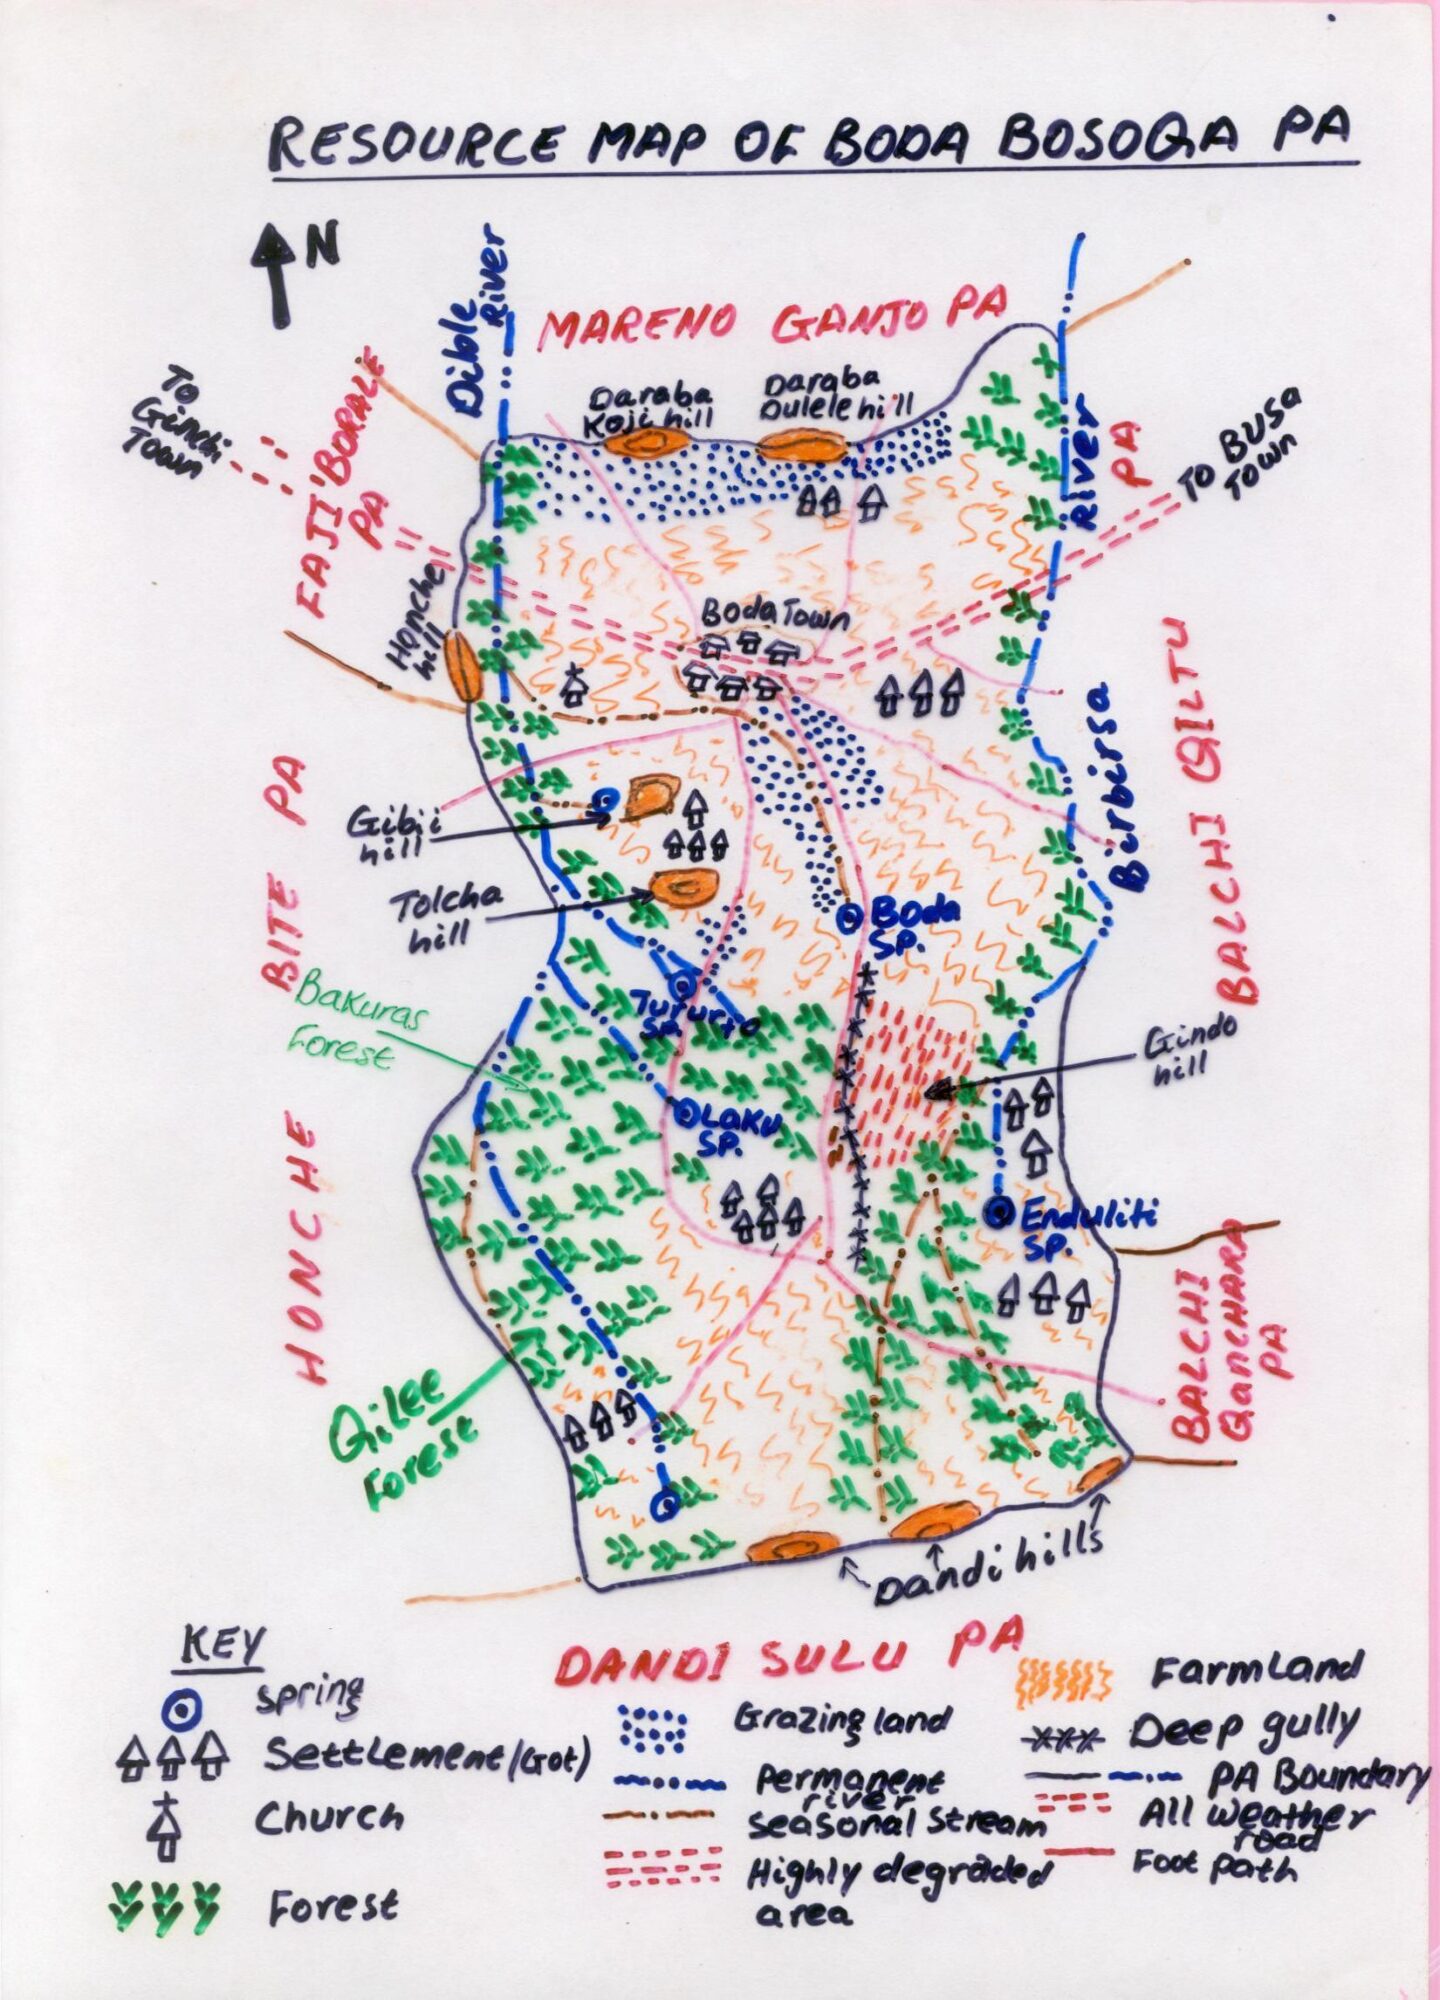 RESOURCE MAP OF BODA BOSOQA PA
N
Dible
River
MARENO GANJO PA
TO
Ginchi
Town
FAJI BORALE
PA
Daraba
Koji hill
Daraba
Dulele hill
River
PA
TO BUSA
TOWN
Honche
hill
Boda Town
Birbirsa
BALCHI QILTU
Gibii
hill
BITE PA
Tolcha
hill
Boda
SP.
Bakuras
Forest
Tufurto
SP.
Gindo
hill
HONCHE
Laku
SP.
Enduliti
SP.
BALCHI
Qanchara
PA
Gilee
Forest
Dandi hills
DANDI SULU PA
KEY
Spring
Settlement/(Got)
Church
Forest
Grazing land
Permanent
river
Seasonal Stream
Highly degraded
area
Farm Land
Deep gully
PA Boundary
All weather
road
Foot path